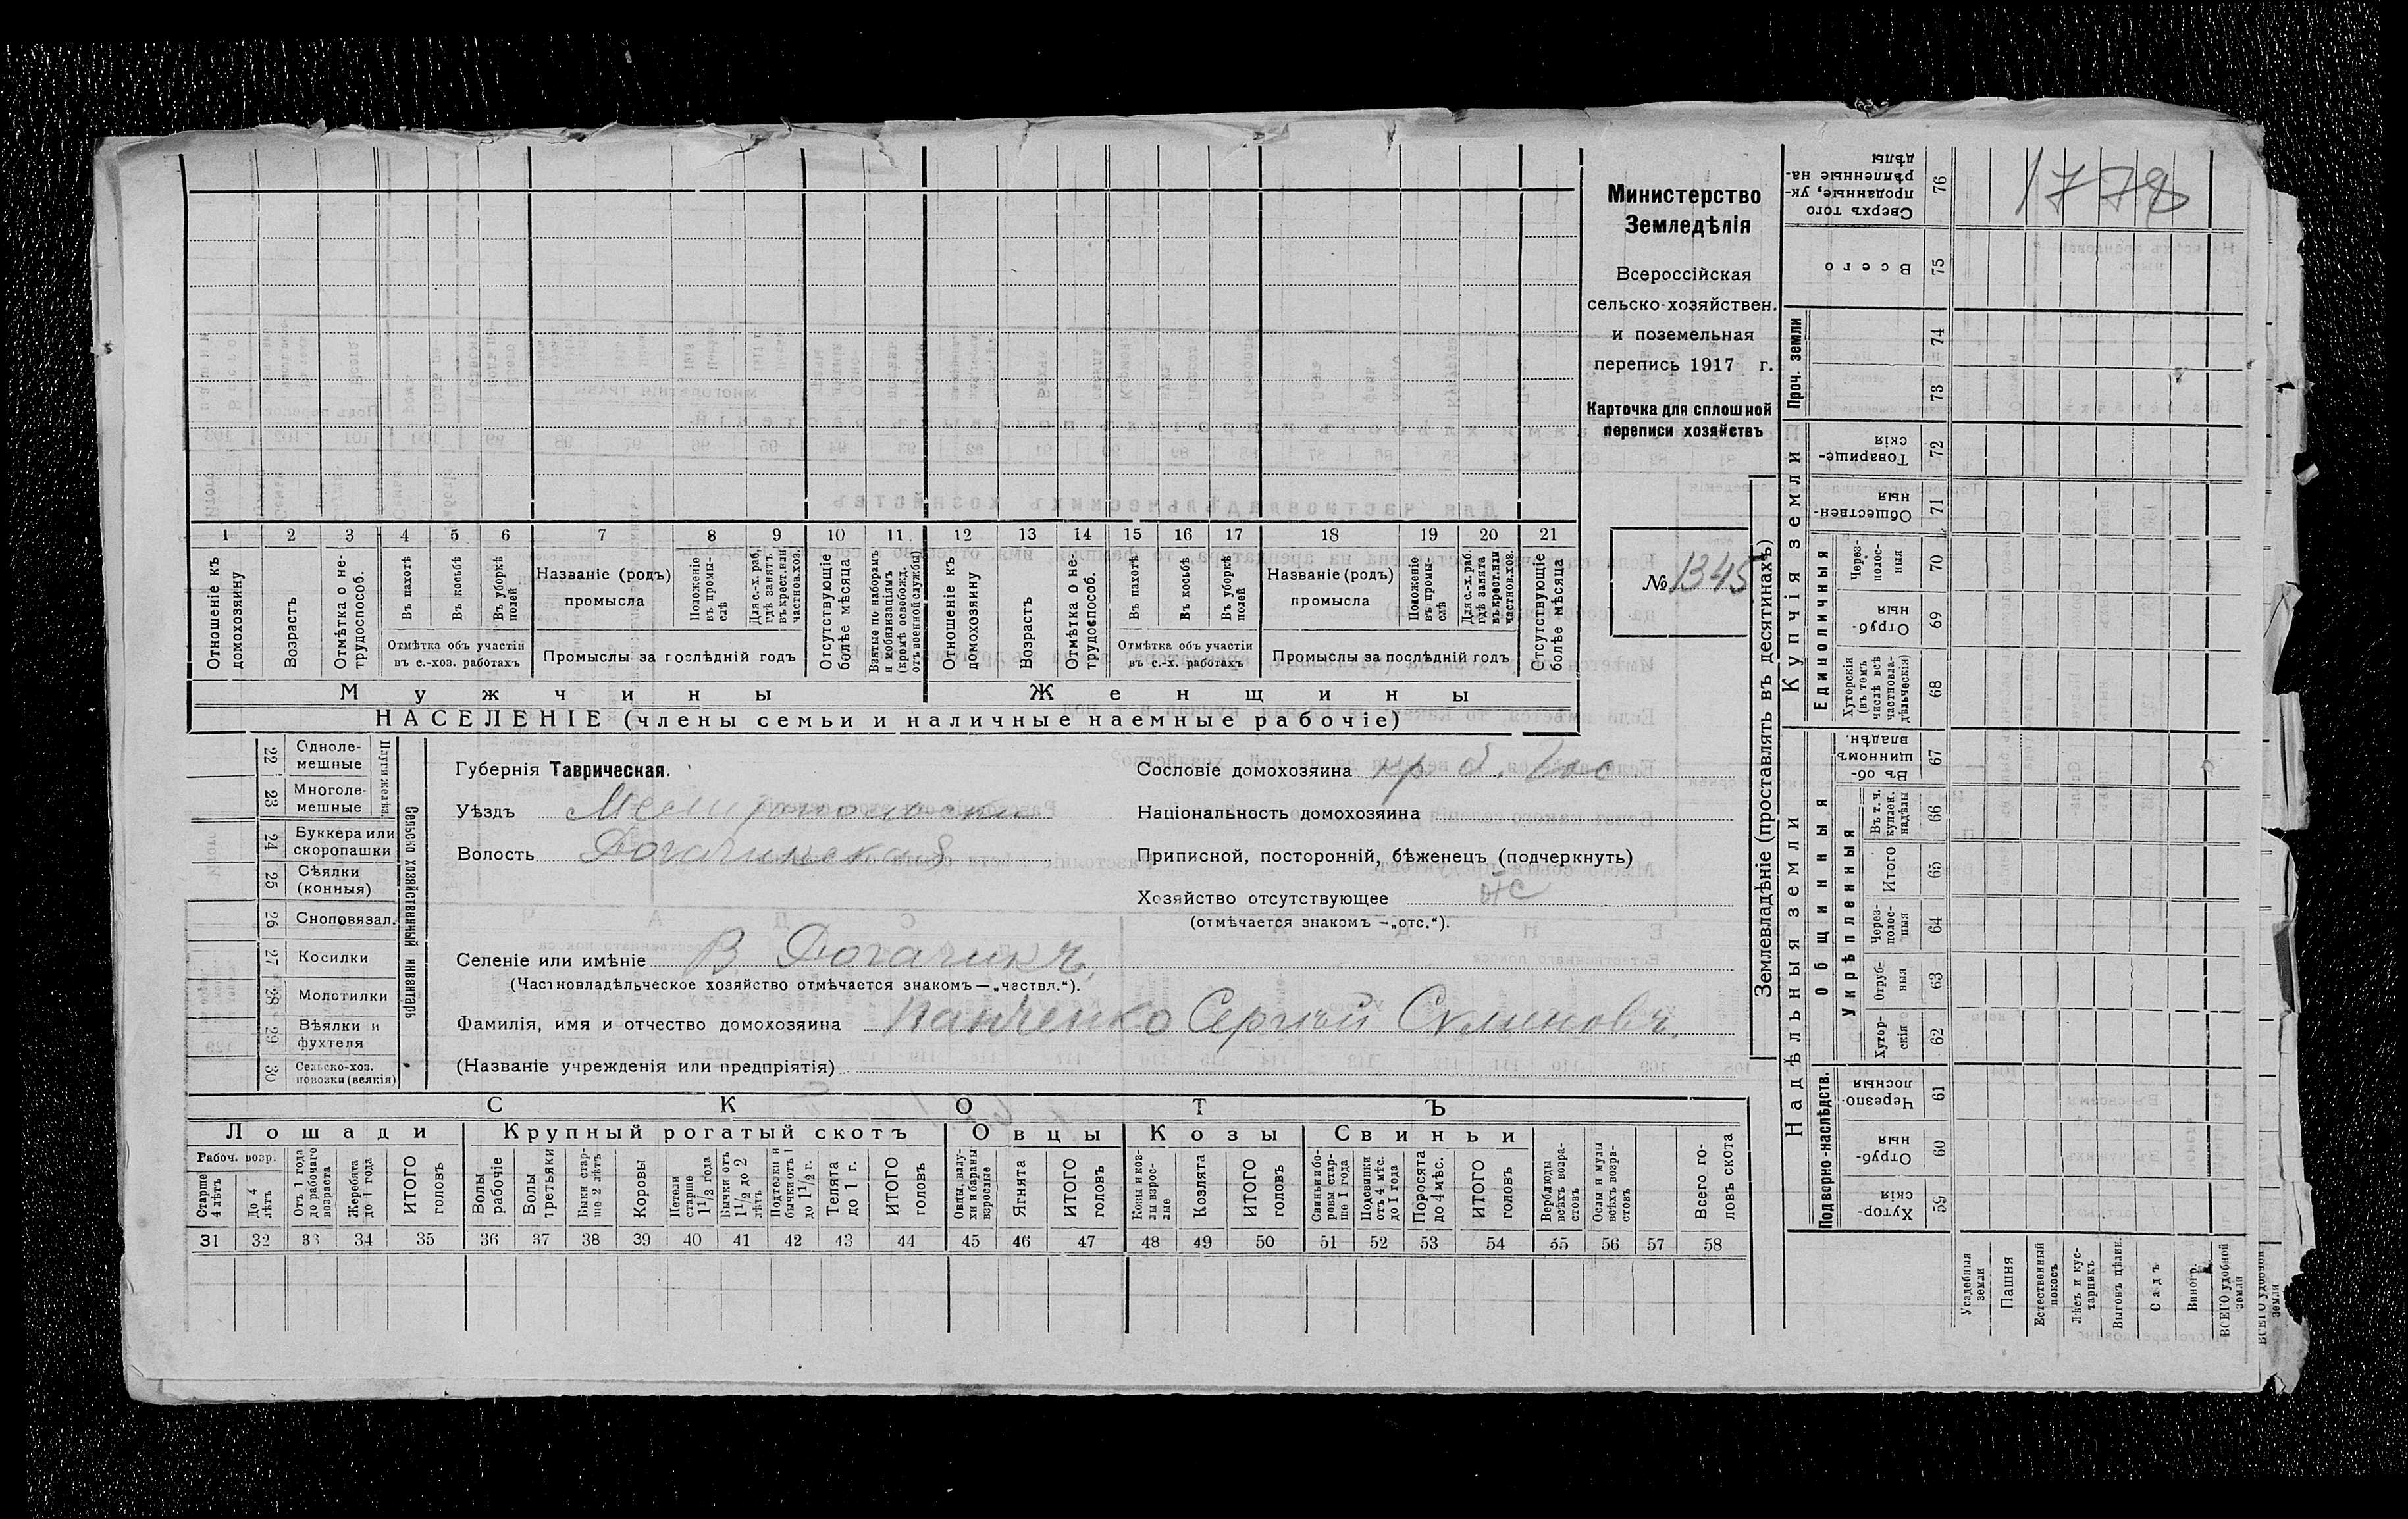 Министерство
Земледѣлія
Всероссійская
сельско-хозяйствен.
и поземельная
перепись 1917 г.
Карточка для сплошной
переписи хозяйствъ
№ 1345
1778
1 2 3 4 5 6 7 8 9 10 11 12 13 14 15 16 17 18 19 20 21
Отношеніе къ домохозяину
Возрастъ
Отмѣтка о не-трудоспособ.
Въ пахотѣ
Въ косьбѣ
Въ уборкѣ полей
Отмѣтка объ участіи
въ с.-хоз. работахъ
Названіе (родъ)
промысла
Положеніе въ промы-слѣ
Для с.-х. раб. гдѣ занятъ въ крест. или частнов. хоз.
Промыслы за послѣдній годъ
Отсутствующіе болѣе мѣсяца
Взятые по наборамъ и мобилизаціямъ (кромѣ освобожд. отъ военной службы)
Отношеніе къ домохозяину
Возрастъ
Отмѣтка о не-трудоспособ.
Въ пахотѣ
Въ косьбѣ
Въ уборкѣ полей
Отмѣтка объ участіи
въ с.-х. работахъ
Названіе (родъ)
промысла
Положеніе въ промы-слѣ
Для с.-х. раб. гдѣ занята въ крест. или частнов. хоз.
Промыслы за послѣдній годъ
Отсутствующіе болѣе мѣсяца
Мужчины Женщины
НАСЕЛЕНІЕ (члены семьи и наличные наемные рабочіе)
22 Однолемешные
23 Многолемешные
24 Буккера или скоропашки
25 Сѣялки (конныя)
26 Сноповязал.
27 Косилки
28 Молотилки
29 Вѣялки и фухтеля
30 Сельско-хоз. повозки (всякія)
Сельско хозяйственный инвентарь
Губернія Таврическая.
Уѣздъ
Волость
Селеніе или имѣніе В.
(Частновладѣльческое хозяйство отмѣчается знакомъ—„частвл.“).
Фамилія, имя и отчество домохозяина Панченко Сергѣй
(Названіе учрежденія или предпріятія)
Сословіе домохозяина
Національность домохозяина
Приписной, посторонній, бѣженецъ (подчеркнуть)
Хозяйство отсутствующее
(отмѣчается знакомъ —„отс.“).
СКОТЪ
Лошади Крупный рогатый скотъ Овцы Козы Свиньи
Рабоч. возр.
Старше 4 лѣтъ
До 4 лѣтъ
Отъ 1 года до рабочаго возраста
Жеребята до 1 года
ИТОГО головъ
Волы рабочіе
Волы третьяки
Быки старше 2 лѣтъ
Коровы
Нетели старше 1½ года
Бычки отъ 1½ до 2 лѣтъ
Подтелки и бычки отъ 1 до 1½ г.
Телята до 1 г.
ИТОГО головъ
Овцы, валухи и бараны взрослые
Ягнята
ИТОГО головъ
Козы и козлы взрослые
Козлята
ИТОГО головъ
Свиньи и боровы старше 1 года
Подсвинки отъ 4 мѣс. до 1 года
Поросята до 4 мѣс.
ИТОГО головъ
Верблюды всѣхъ возрастовъ
Ослы и мулы всѣхъ возрастовъ
Всего головъ скота
31 32 33 34 35 36 37 38 39 40 41 42 43 44 45 46 47 48 49 50 51 52 53 54 55 56 57 58
Землевладѣніе (проставлять въ десятинахъ)
Купчія земли
Надѣльныя земли
Проч. земли
Единоличныя
Общинныя
Укрѣпленныя
Подворно-наслѣдств.
Сверхъ того проданные, укрѣпленные надѣлы 76
Всего 75
74
73
Товарищескія 72
Общественныя 71
Черезполосныя 70
Отрубныя 69
Хуторскія (въ томъ числѣ всѣ частновладѣльческія) 68
Въ общинномъ владѣн. 67
Въ т. ч. куплен. надѣлы 66
Итого 65
Черезполосныя 64
Отрубныя 63
Хуторскія 62
Черезполосныя 61
Отрубныя 60
Хуторскія 59
Усадебныя земли
Пашня
Естественный покосъ
Лѣсъ и кустарникъ
Выгонъ цѣлин.
Садъ
Виногр.
ВСЕГО удобной земли